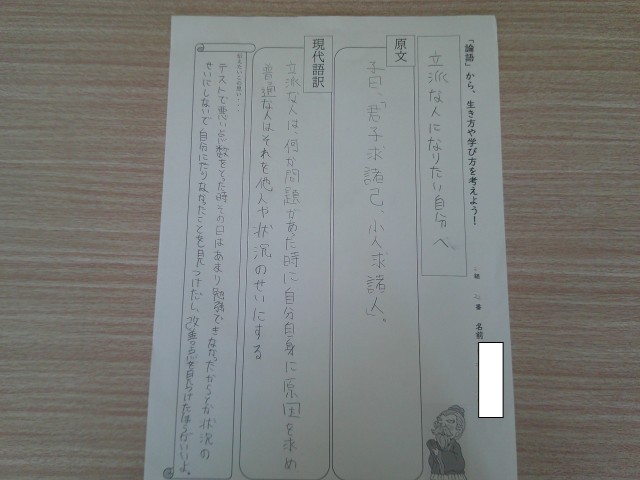 「論語」から、生き方や学び方を考えよう！
組 番 名前
立派な人になりたい自分へ
原文
子曰、「君子求諸己、小人求諸人」。
現代語訳
立派な人は、何か問題があった時に自分自身に原因を求め
普通な人はそれを他人や状況のせいにする
テストで悪い点数をとった時その日はあまり勉強できななかったからとか状況の
せいにしないで、自分に足りなかったことを見つけたり、改善点を見つけたほうがいいよ。